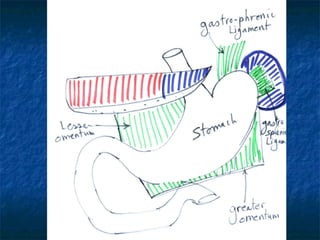 gastro-phrenic
Ligament
Lesse
omentum
Stomach
gastro
Ligam
greater
omentum